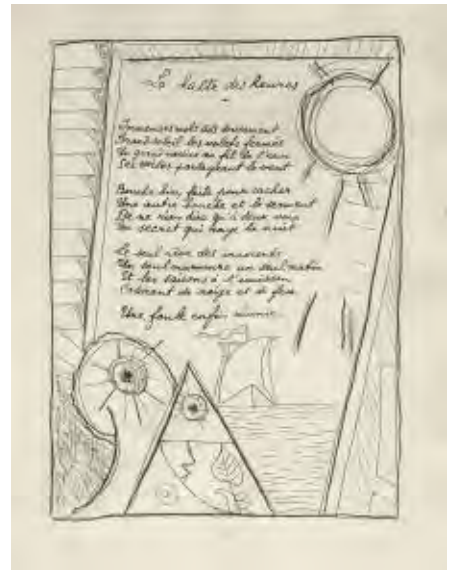 La halte des heures
Immenses mots dits doucement
Grand soleil les volets fermés
Un grand navire au fil de l'eau
Ses voiles partageant le vent
Bouche bien faite pour cacher
Une autre bouche et le serment
De ne rien dire qu'à deux voix
secret qui raye la nuit
Le seul rêve des innocents
Un seul murmure un seul matin
Et les saisons à l'unisson
Colorant de neige et de feu
Une foule enfin réunie